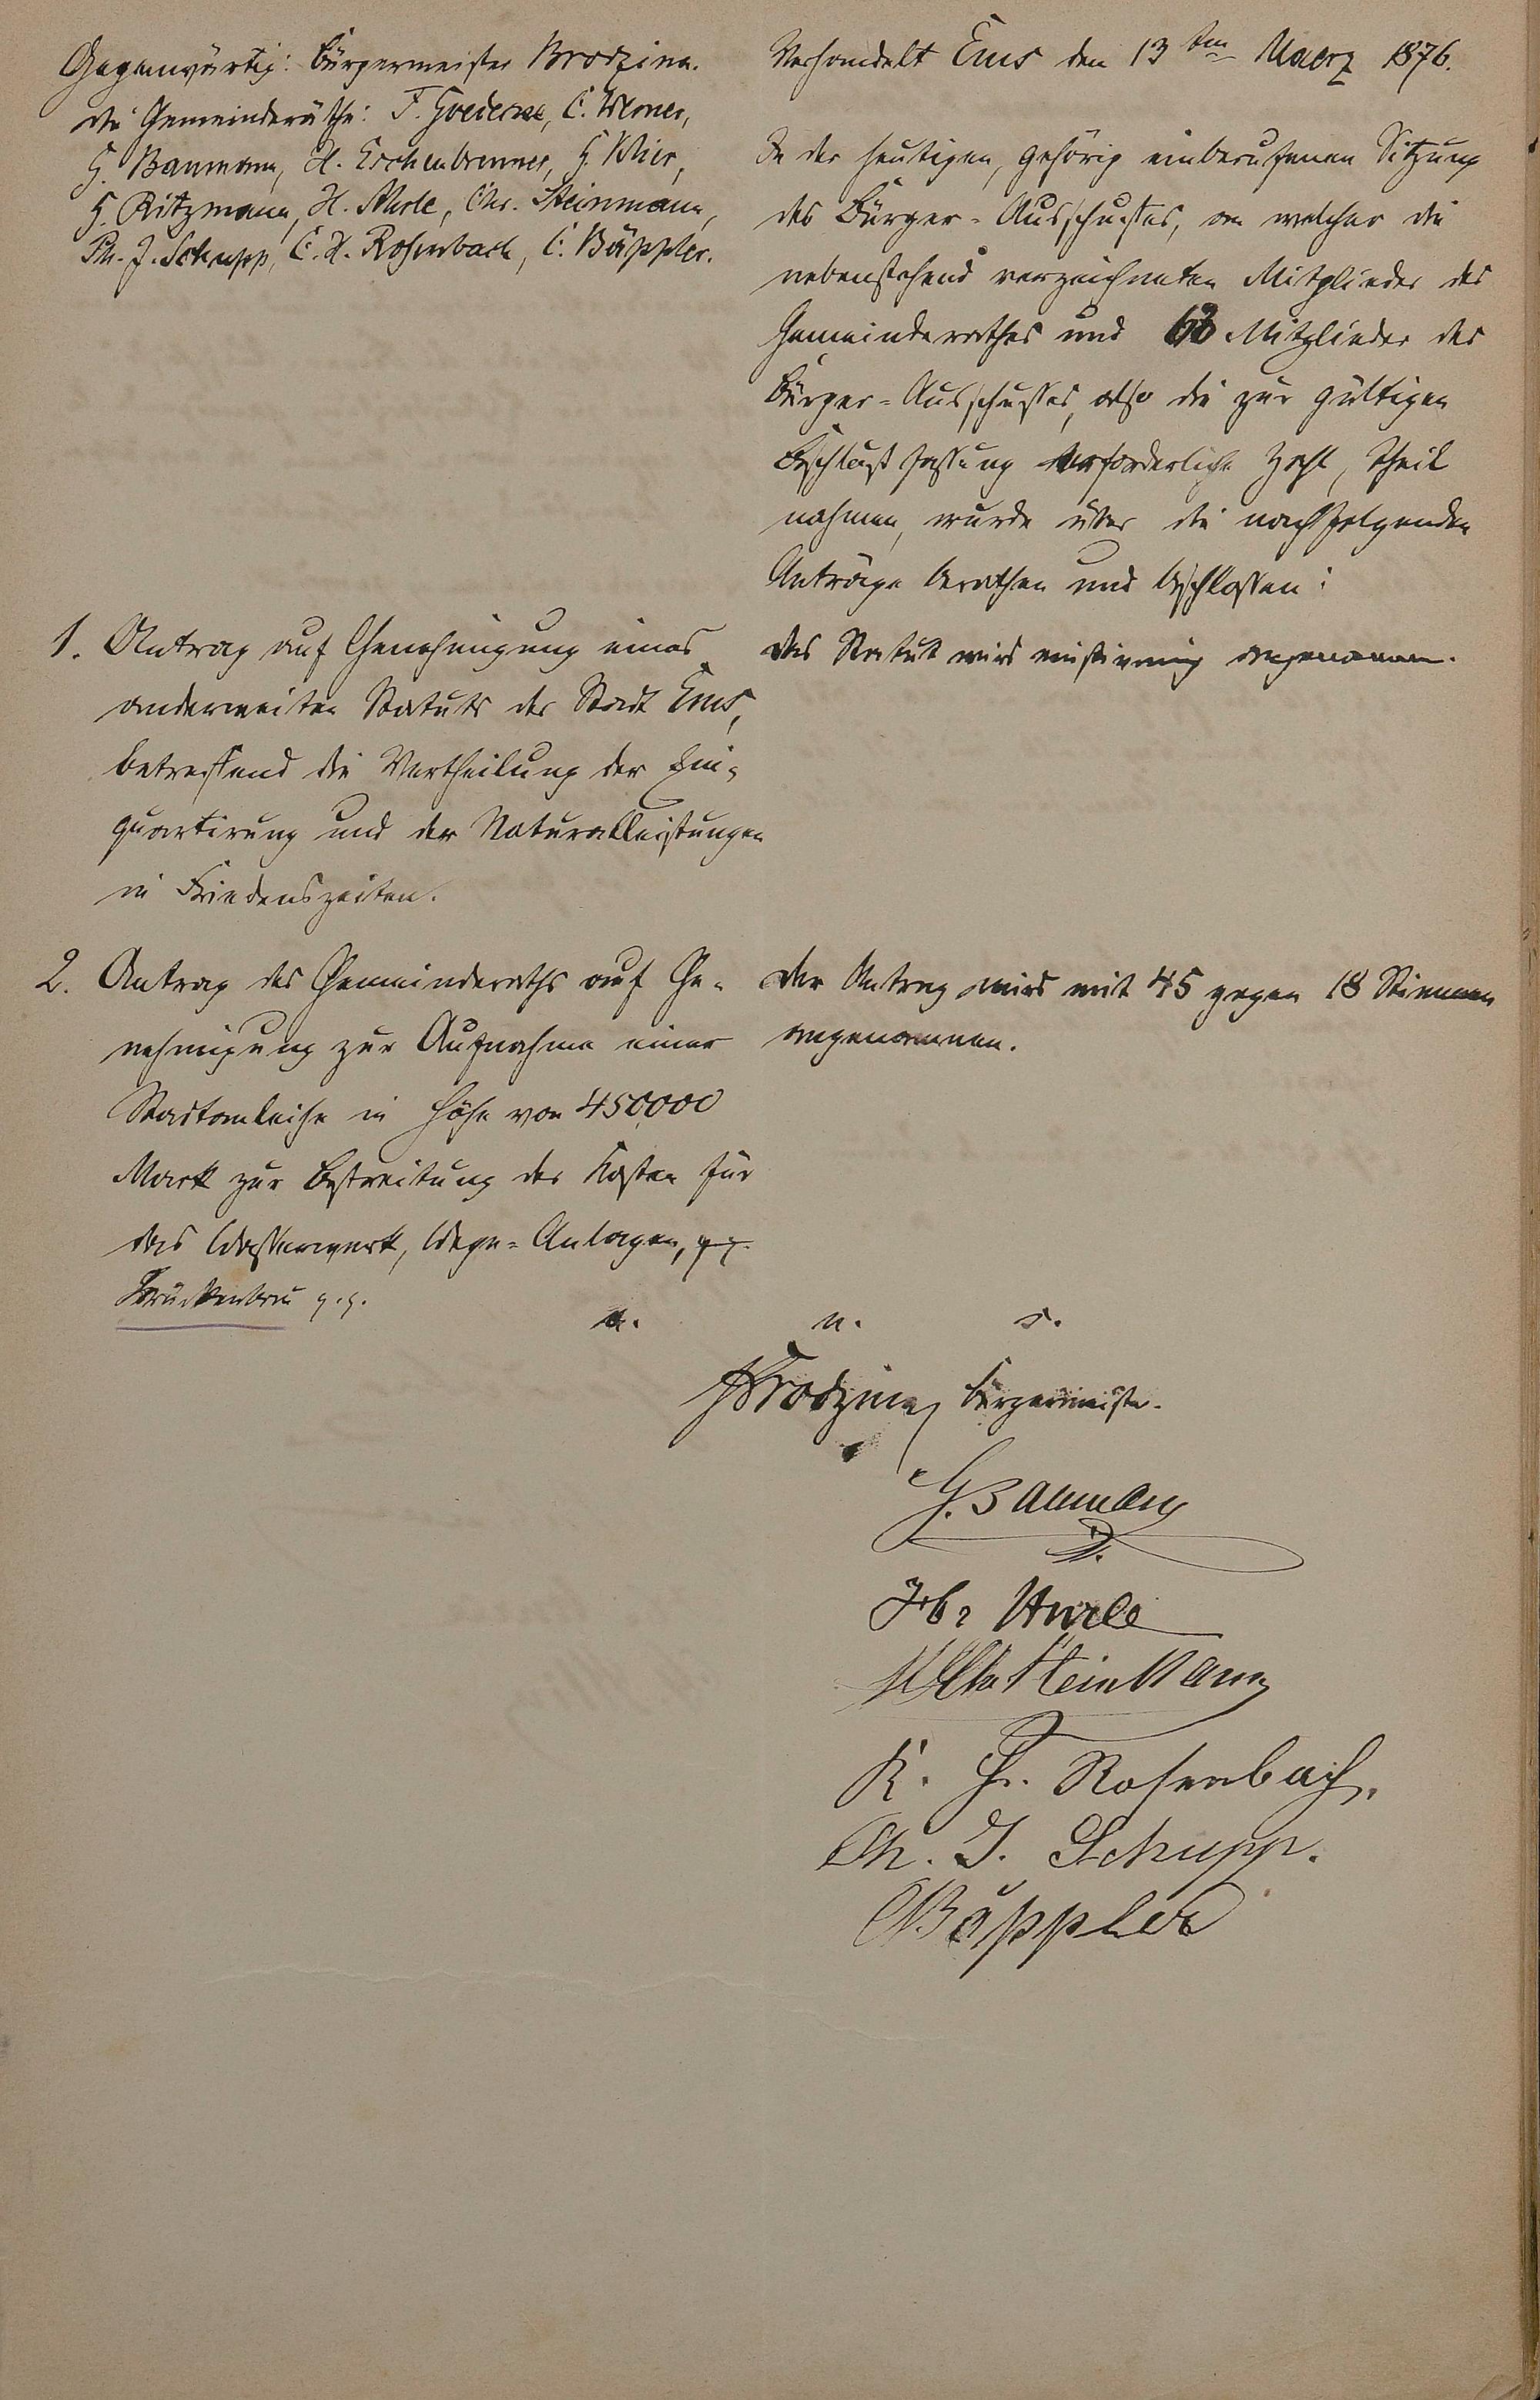 Gegenwärtig: Bürgermeister Brodzina.
die Gemeinderäthe: F. C. Werner,
G. Baumann, H. Eschenbrenner,
H. Chr. Steinmann,
Ph. J. Schupp, C. H. Rosenbach, C. Bäppler.
Verhandelt Ems den 13ten Maerz 1876.
In der heutigen, gehörig einberufenen Sitzung
des Bürger-Ausschusses, an welcher die
nebenstehend verzeichneten Mitglieder des
Gemeinderathes und Mitglieder des
Bürger-Ausschusses, also die zur gültigen
Beschlußfassung erforderliche Zahl, Theil
nahmen, wurde über die nachfolgenden
Anträge berathen und beschlossen:
1. Antrag auf Genehmigung eines
anderweiten Statuts der Stadt Ems,
betreffend die Vertheilung der Ein-
quartirung und der Naturalleistungen
in Friedenszeiten.
Das Statut wird einstimmig angenommen.
2. Antrag des Gemeinderaths auf Ge-
nehmigung zur Aufnahme einer
Stadtanleihe in Höhe von 450,000
Mark zur Bestreitung der Kosten für
das Wasserwerk, Wege-Anlagen,
Brückenbau
Der Antrag wird mit 45 gegen 18 Stimmen
angenommen.
a. u. s.
Brodzina Bürgermeister.
G. Baumann
Steinmann
K. H. Rosenbach.
Ph. J. Schupp.
C Bäppler